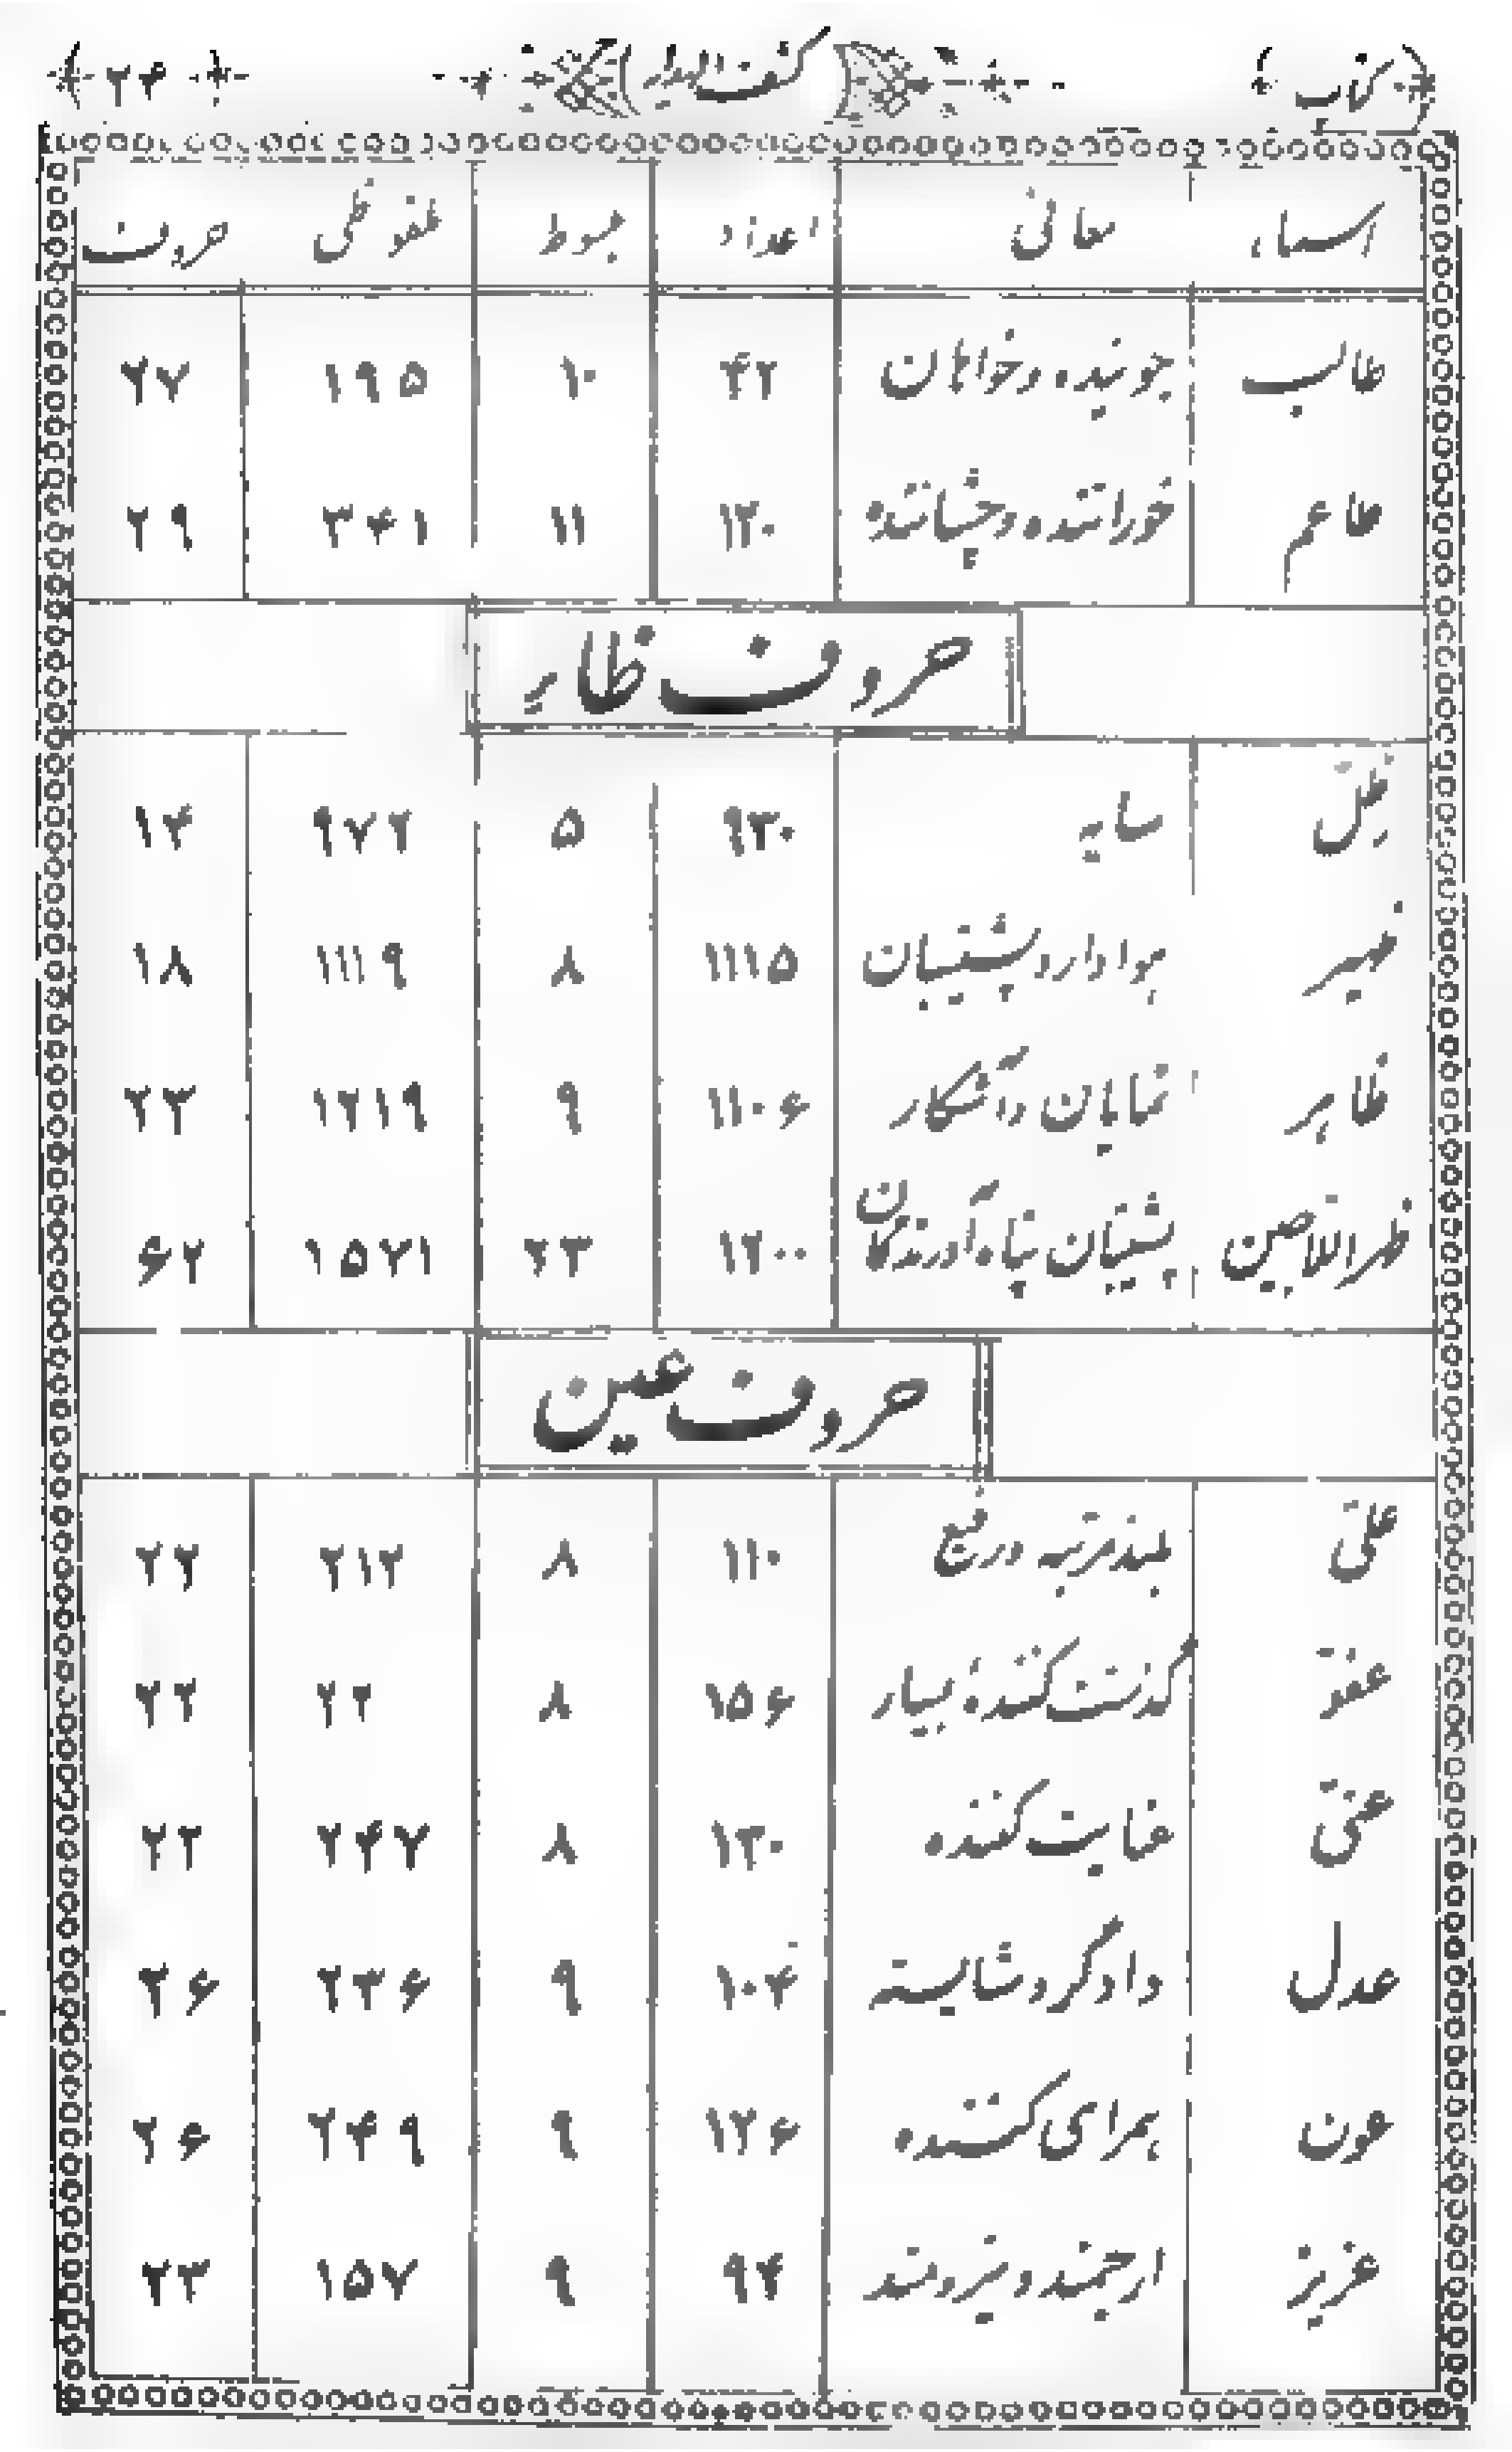 کتاب کشف المدار ۲۴
اسماء معانی اعداد مبسوط ملفوظی حروف
طالب جوینده و خواهان ۴۲ ۱۰ ۱۹۵ ۲۷
طاعم خوراننده و چشاننده ۱۲۰ ۱۱ ۳۴۱ ۲۹
حروف ظاء
ظلّ سایه ۹۳۰ ۵ ۹۷۲ ۱۴
ظهیر هوادار و پشتیبان ۱۱۱۵ ۸ ۱۱۱۹ ۱۸
ظاهر نمایان و آشکار ۱۱۰۶ ۹ ۱۲۱۹ ۲۳
ظهر اللاجین پشتیبان پناه آورندگان ۱۲۰۰ ۲۳ ۱۵۷۱ ۶۲
حروف عین
علیّ بلند مرتبه و رفیع ۱۱۰ ۸ ۲۱۲ ۲۲
عفوّ گذشت کنندهٔ بسیار ۱۵۶ ۸ ۲۲ ۲۲
عنیّ عنایت کننده ۱۳۰ ۸ ۲۴۷ ۲۲
عدل دادگر و شایسته ۱۰۴ ۹ ۲۳۶ ۲۶
عون همراهی کننده ۱۲۶ ۹ ۲۴۹ ۲۶
عزیز ارجمند و نیرومند ۹۴ ۹ ۱۵۷ ۲۳